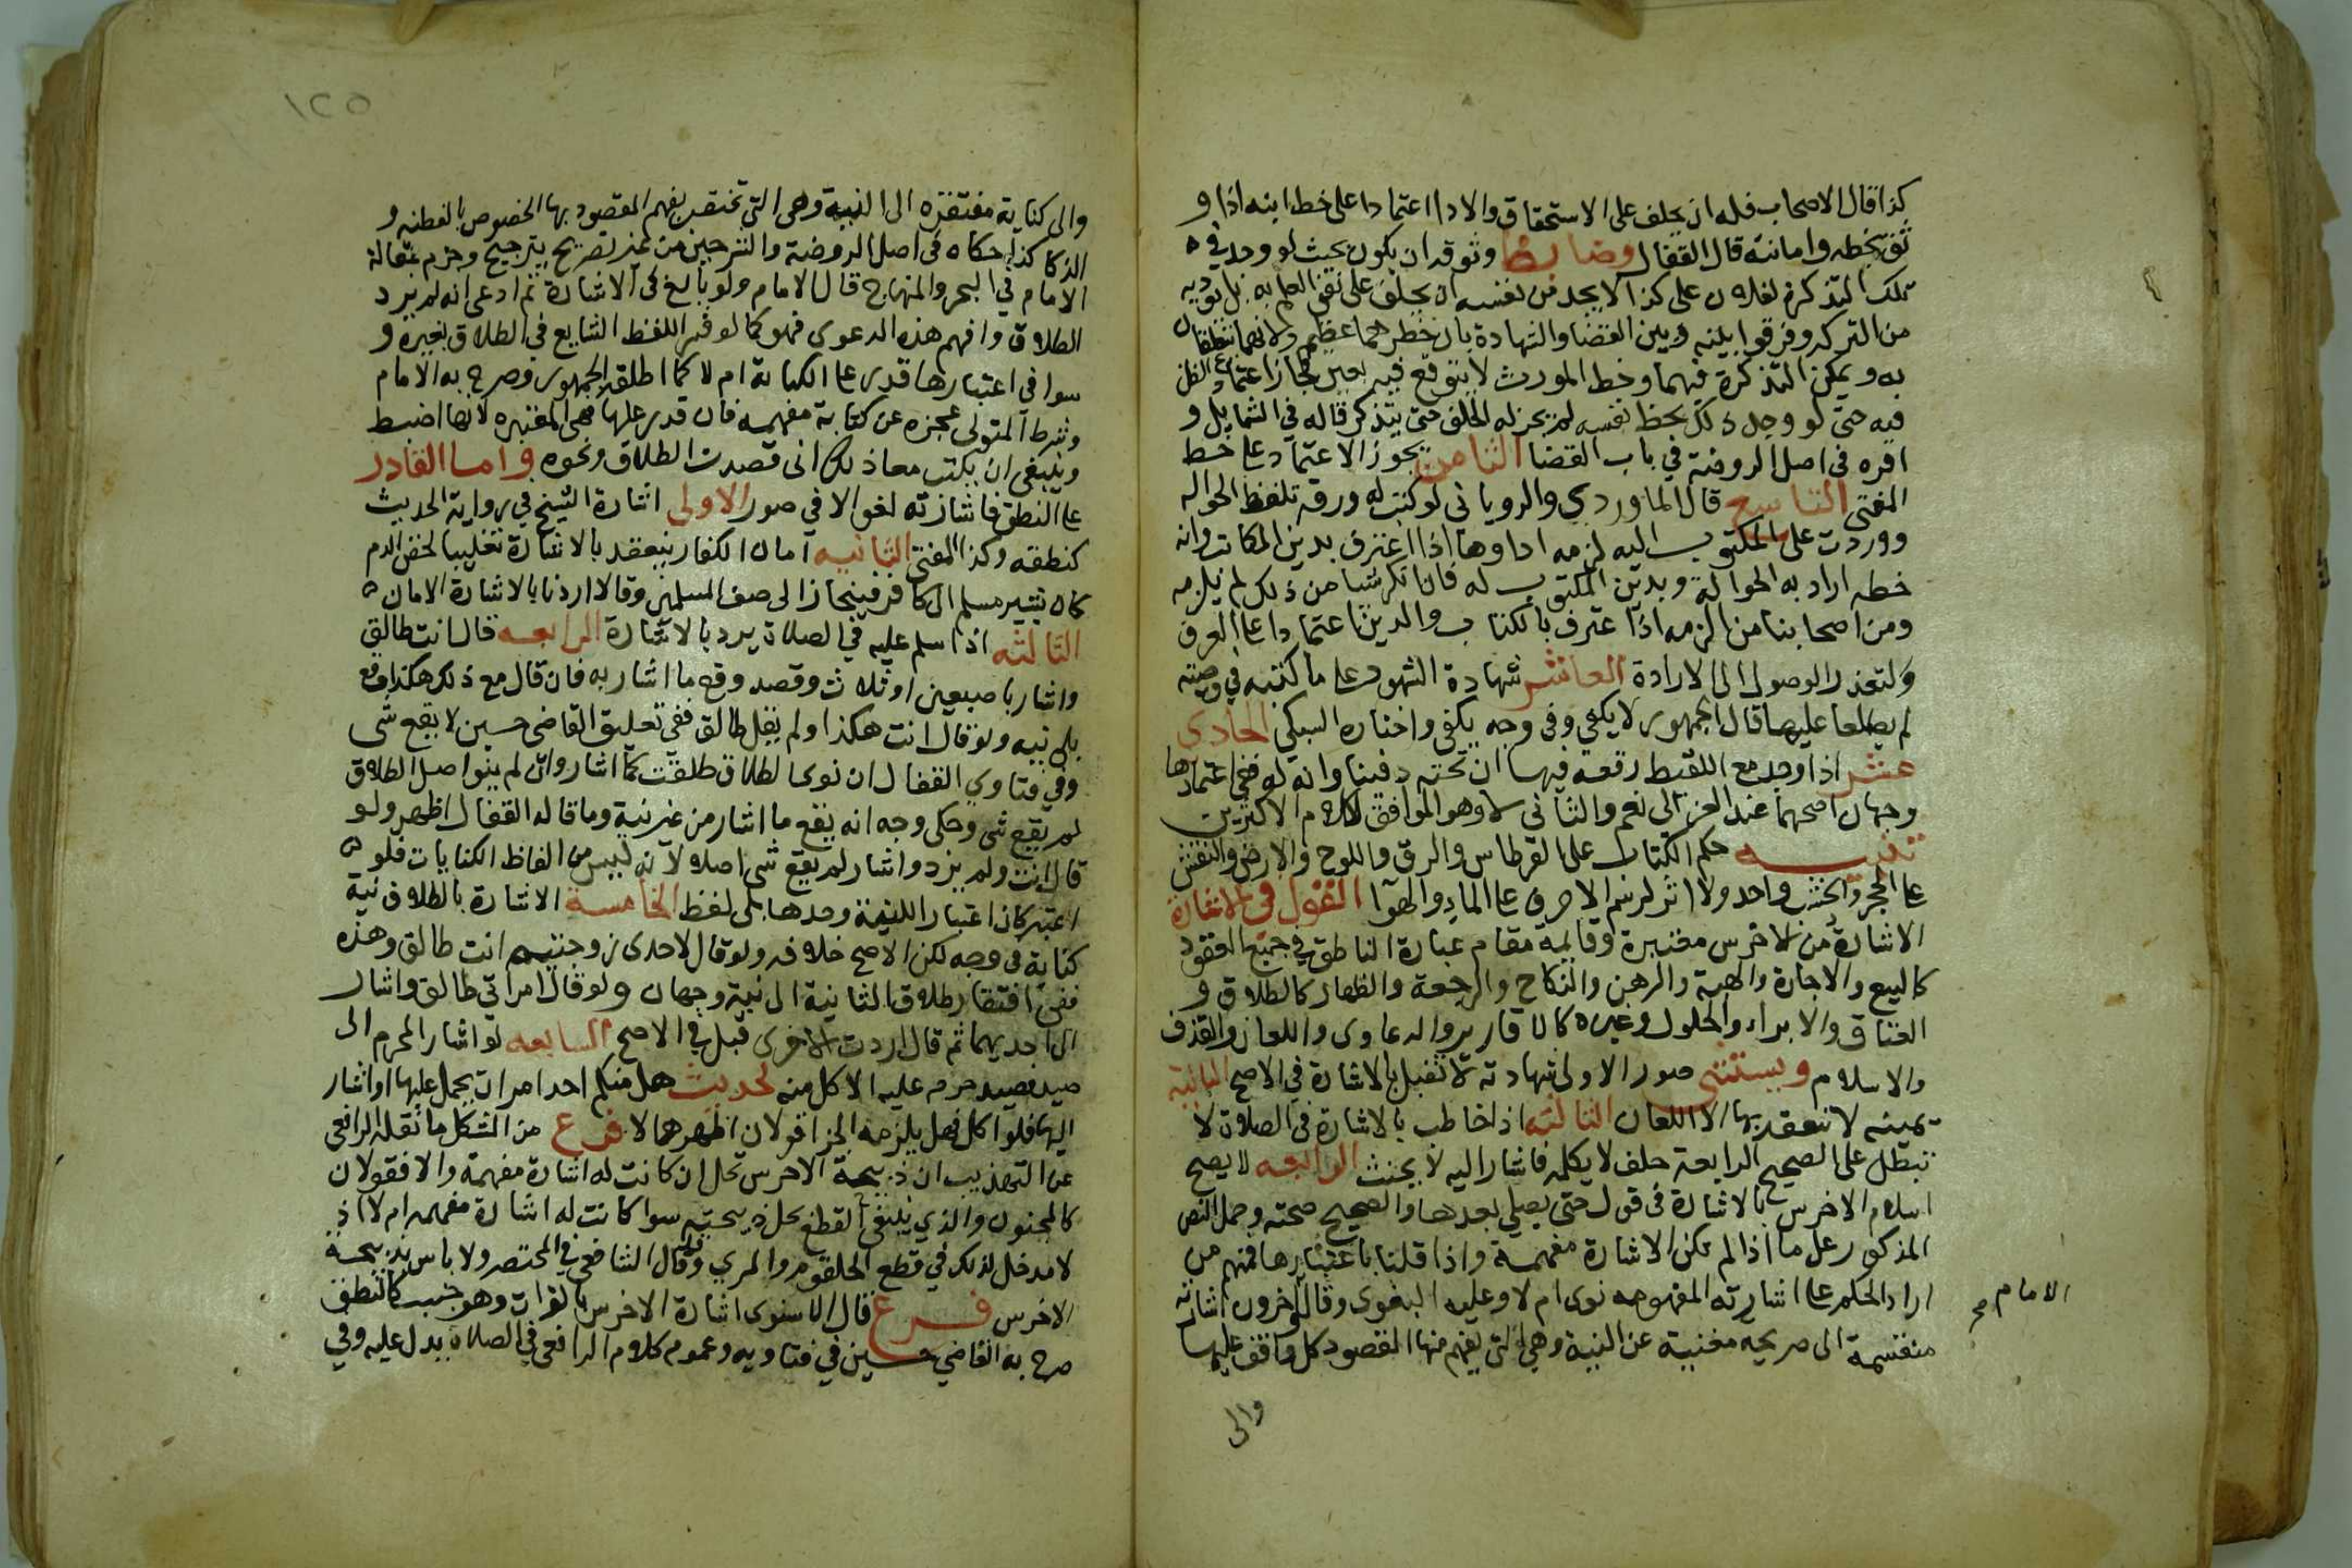 كذا قال الاصحاب فله ان يحلف على الاستحقاق والادا اعتمادا على خط ابيه اذا و
ثق بخطه وامانته قال القفال وضابط وثوقه ان يكون بحيث لو وجد في
تلك التذكرة لفلان على كذا لا يجد من نفسه ان يحلف على نفي العلم به بل يوديه
من التركه وفرقوا بينه وبين القضا والشهادة بان خطرهما عظيم ولانهما يتعلقان
به ويمكن التذكرة فيهما وخط المورث لا يتوقع فيه يقين فجاز اعتماد الظن
فيه حتى لو وجد ذلك بخط نفسه لم يجز له الحلف حتى يتذكر قاله في الشامل و
اقره في اصل الروضة في باب القضا الثامن يجوز الاعتماد على خط
المفتي التاسع قال الماوردي والروياني لو كتب له ورقة بلفظ الحواله
ووردت على المكتوب اليه لزمه اداوها اذا اعترف بدين المكاتب وانه
خطه اراد به الحوالة وبدين المكتوب له فان انكر شيا من ذلك لم يلزمه
ومن اصحابنا من الزمه اذا اعترف بالكتاب والدين اعتمادا على العرف
ولتعذر الوصول الى الارادة العاشر شهادة الشهود على ما كتبه في وصيته
لم يطلعا عليها قال الجمهور لا يكفي وفي وجه يكفي واختاره السبكي الحادي
عشر اذا وجد مع اللقيط رقعة فيها ان تحته دفينا وانه له ففي اعتمادها
وجهان اصحهما عند الغزالي نعم والثاني لا وهو الموافق لكلام الاكثرين
تنبيه حكم الكتاب على القرطاس والرق واللوح والارض والنقش
على الحجر والخشب واحد ولا اثر لرسم الاحرف على الماء والهوآ القول في الاشارة
الاشارة من الاخرس معتبرة وقايمة مقام عبارة الناطق في جميع العقود
كالبيع والاجارة والهبة والرهن والنكاح والرجعة والظهار كالطلاق و
العتاق والابراء والحلول وغيره كالاقارير والدعاوى واللعان والقذف
والاسلام ويستثنى صور الاولى شهادته لا تقبل بالاشارة في الاصح الثانية
يمينه لا تنعقد بها الا اللعان الثالثه اذا خاطب بالاشارة في الصلاة لا
تبطل على الصحيح الرابعة حلف لا يكلمه فاشار اليه لا يحنث الرابعه لا يصح
اسلام الاخرس بالاشارة في قول حتى يصلي بعدها والصحيح صحته وحمل النص
المذكور على ما اذا لم تكن الاشارة مفهمة واذا قلنا باعتبارها فمنهم من
ادار الحكم على اشارته المفهومه نوى ام لا وعليه البغوى وقال آخرون اشارته
الامام صح
منقسمة الى صريحه مغنية عن النية وهي التي يفهم منها المقصود كل واقف عليها
والى
١٢٥
والى كناية مفتقرة الى النية وهي التي تختص بفهم المقصود بها الخصوص بالفطنه و
الذكا كذا حكاه في اصل الروضة والشرحين من غير تصريح بترجيح وجزم بمقالة
الامام في البحر والمنهاج قال الامام ولو بالغ في الاشارة ثم ادعى انه لم يرد
الطلاق وافهم هذه الدعوى فهو كما لو فسر اللفظ الشايع في الطلاق بغيره و
سوا في اعتبارها قدر على الكتابة ام لا كما اطلقه الجمهور وصرح به الامام
وشرط المتولي عجزه عن كتابة مفهمه فان قدر عليها فهي المعتبره لانها اضبط
وينبغي ان يكتب مع ذلك اني قصدت الطلاق ونحوه واما القادر
على النطق فاشارته لغو الا في صور الاولى اشارة الشيخ في رواية الحديث
كنطقه وكذا المفتي الثانيه امان الكفار ينعقد بالاشارة تغليبا لحقن الدم
كان يشير مسلم الى كافر فينحاز الى صف المسلمين وقالا اردنا بالاشارة الامان
الثالثه اذا سلم عليه في الصلاة يرد بالاشارة الرابعه قال انت طالق
واشار باصبعين او ثلاث وقصد وقع ما اشار به فان قال مع ذلك هكذا وقع
بلا نيه ولو قال انت هكذا ولم يقل طالق ففي تعليق القاضي حسين لا يقع شي
وفي فتاوي القفال ان نوى الطلاق طلقت كما اشار وان لم ينو اصل الطلاق
لم يقع شي وحكى وجه انه يقع ما اشار من غير نية وما قاله القفال اظهر ولو
قال انت ولم يزد واشار لم يقع شي اصلا لانه ليس من الفاظ الكنايات فلو
اعتبر كان اعتبار النية وحدها بلا لفظ الخامسة الاشارة بالطلاق نية
كناية في وجه لكن الاصح خلافه ولو قال لاحدى زوجتيه انت طالق وهذه
ففي افتقار طلاق الثانية الى نية وجهان ولو قال امراتي طالق واشار
الى احديهما ثم قال اردت الاخرى قبل في الاصح السابعه لو اشار المحرم الى
صيد فصيد حرم عليه الاكل منه لحديث هل منكم احد امر ان يحمل عليها او اشار
اليها فلو اكل فهل يلزمه الجزا قولان اظهرهما لا فرع من المشكل ما نقله الرافعي
عن التهذيب ان ذبيحة الاخرس تحل ان كانت له اشارة مفهمة والا فقولان
كالمجنون والذي ينبغي القطع بحل ذبيحته سوا كانت له اشارة مفهمه ام لا اذ
لا مدخل لذلك في قطع الحلقوم والمري وقد قال الشافعي في المختصر ولا باس بذبيحة
الاخرس فرع قال الاسنوي اشارة الاخرس بالقرات وهو جنب كالنطق
صرح به القاضي حسين في فتاويه وعموم كلام الرافعي في الصلاة يدل عليه وفي